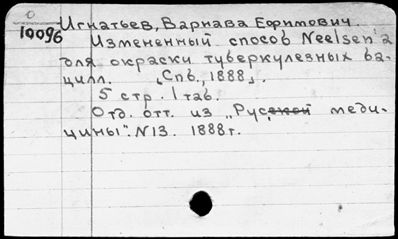 Игнатьев, Варнава Ефимович.
10096
Измененный способ Neelsen'a
для окраски туберкулезных ба-
цилл. [Спб., 1888].
5 стр. 1 таб.
Отд. отт. из „Русской меди-
цины". N13. 1888 г.